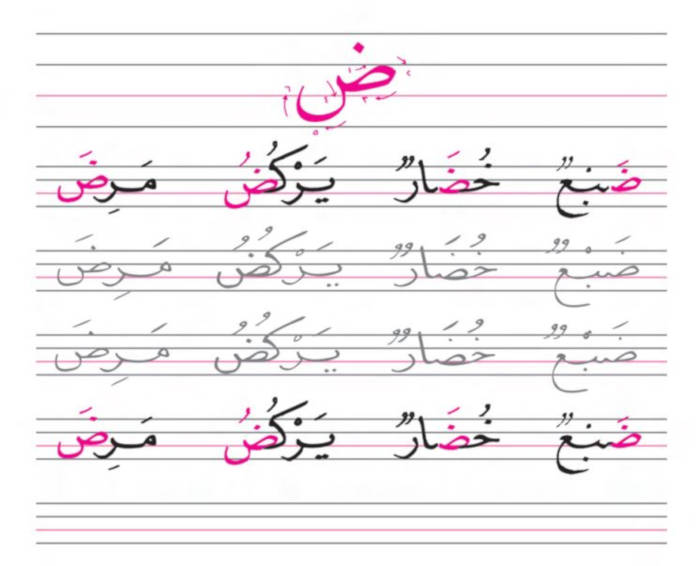 ض
ضَبْعٌ خُضَارٌ يَرْكُضُ مَرِضَ
ضَبْعٌ خُضَارٌ يَرْكُضُ مَرِضَ
ضَبْعٌ خُضَارٌ يَرْكُضُ مَرِضَ
ضَبْعٌ خُضَارٌ يَرْكُضُ مَرِضَ